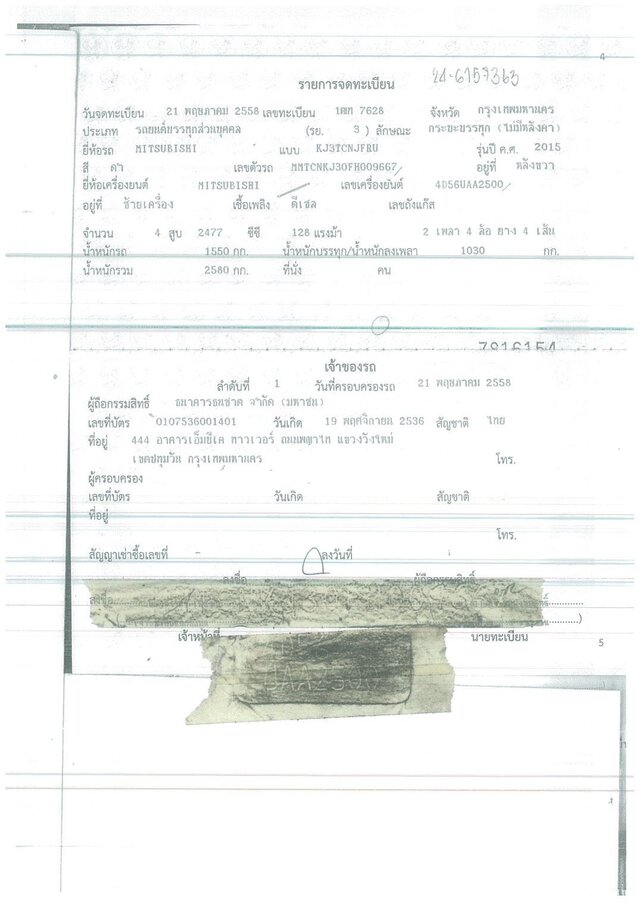 4
24-6157363
รายการจดทะเบียน
วันจดทะเบียน 21 พฤษภาคม 2558 เลขทะเบียน 7628 จังหวัด กรุงเทพมหานคร
ประเภท รถยนต์บรรทุกส่วนบุคคล (รย. 3 ) ลักษณะ กระบะบรรทุก (ไม่มีหลังคา)
ยี่ห้อรถ MITSUBISHI แบบ KJ3TCNJFRU รุ่นปี ค.ศ. 2015
สี ดำ เลขตัวรถ MMTCNKJ30FH009667 อยู่ที่ หลังขวา
ยี่ห้อเครื่องยนต์ MITSUBISHI เลขเครื่องยนต์ 4D56UAA2500
อยู่ที่ ซ้ายเครื่อง เชื้อเพลิง ดีเซล เลขถังแก๊ส
จำนวน 4 สูบ 2477 ซีซี 128 แรงม้า 2 เพลา 4 ล้อ ยาง 4 เส้น
น้ำหนักรถ 1550 กก. น้ำหนักบรรทุก/น้ำหนักลงเพลา 1030 กก.
น้ำหนักรวม 2580 กก. ที่นั่ง คน
7816154
เจ้าของรถ
ลำดับที่ 1 วันที่ครอบครองรถ 21 พฤษภาคม 2558
ผู้ถือกรรมสิทธิ์ ธนาคารธนชาต จำกัด (มหาชน)
เลขที่บัตร 0107536001401 วันเกิด 19 พฤศจิกายน 2536 สัญชาติ ไทย
ที่อยู่ 444 อาคารเอ็มบีเค ทาวเวอร์ ถนนพญาไท แขวงวังใหม่
เขตปทุมวัน กรุงเทพมหานคร โทร.
ผู้ครอบครอง
เลขที่บัตร วันเกิด สัญชาติ
ที่อยู่
โทร.
สัญญาเช่าซื้อเลขที่ ลงวันที่
ลงชื่อ ผู้ถือกรรมสิทธิ์
ลงชื่อ
เจ้าหน้าที่ นายทะเบียน
5